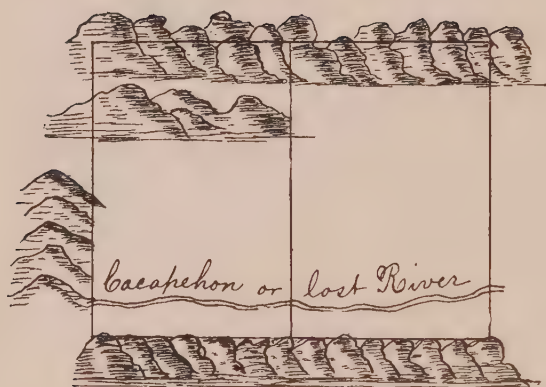 Cacapehon or lost River